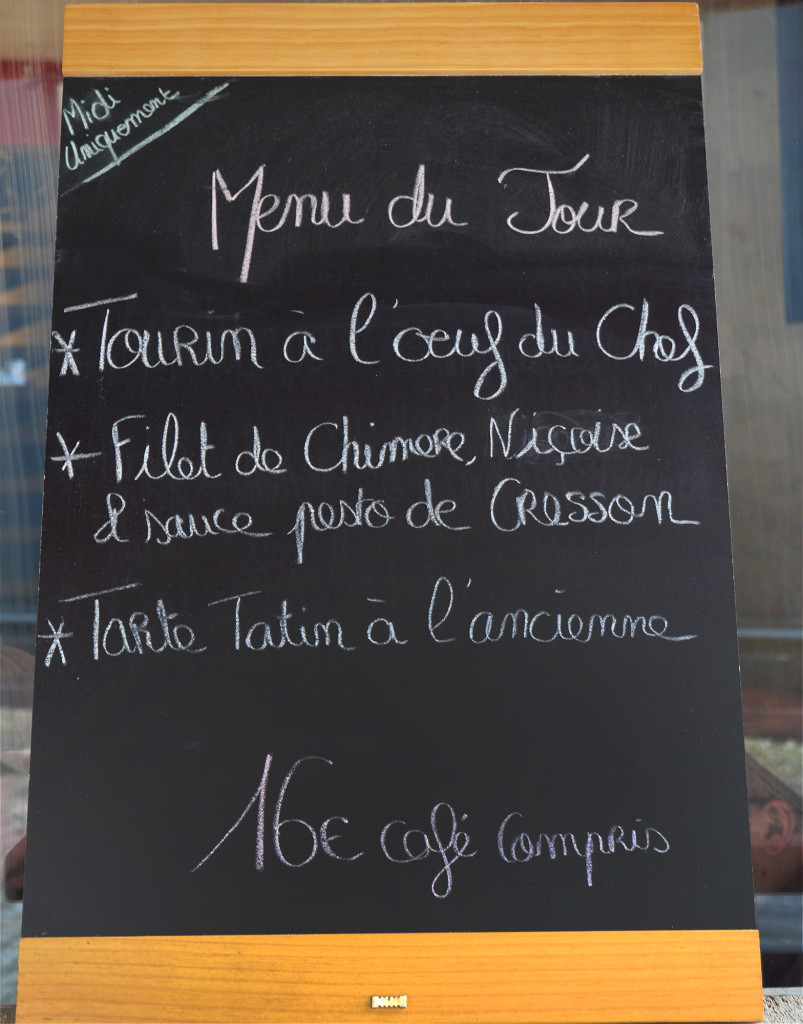 Midi
Uniquement
Menu du Jour
* Tourin à l'œuf du Chef
* Filet de Chimere, Niçoise
& sauce pesto de Cresson
* Tarte Tatin à l'ancienne
16€ café Compris